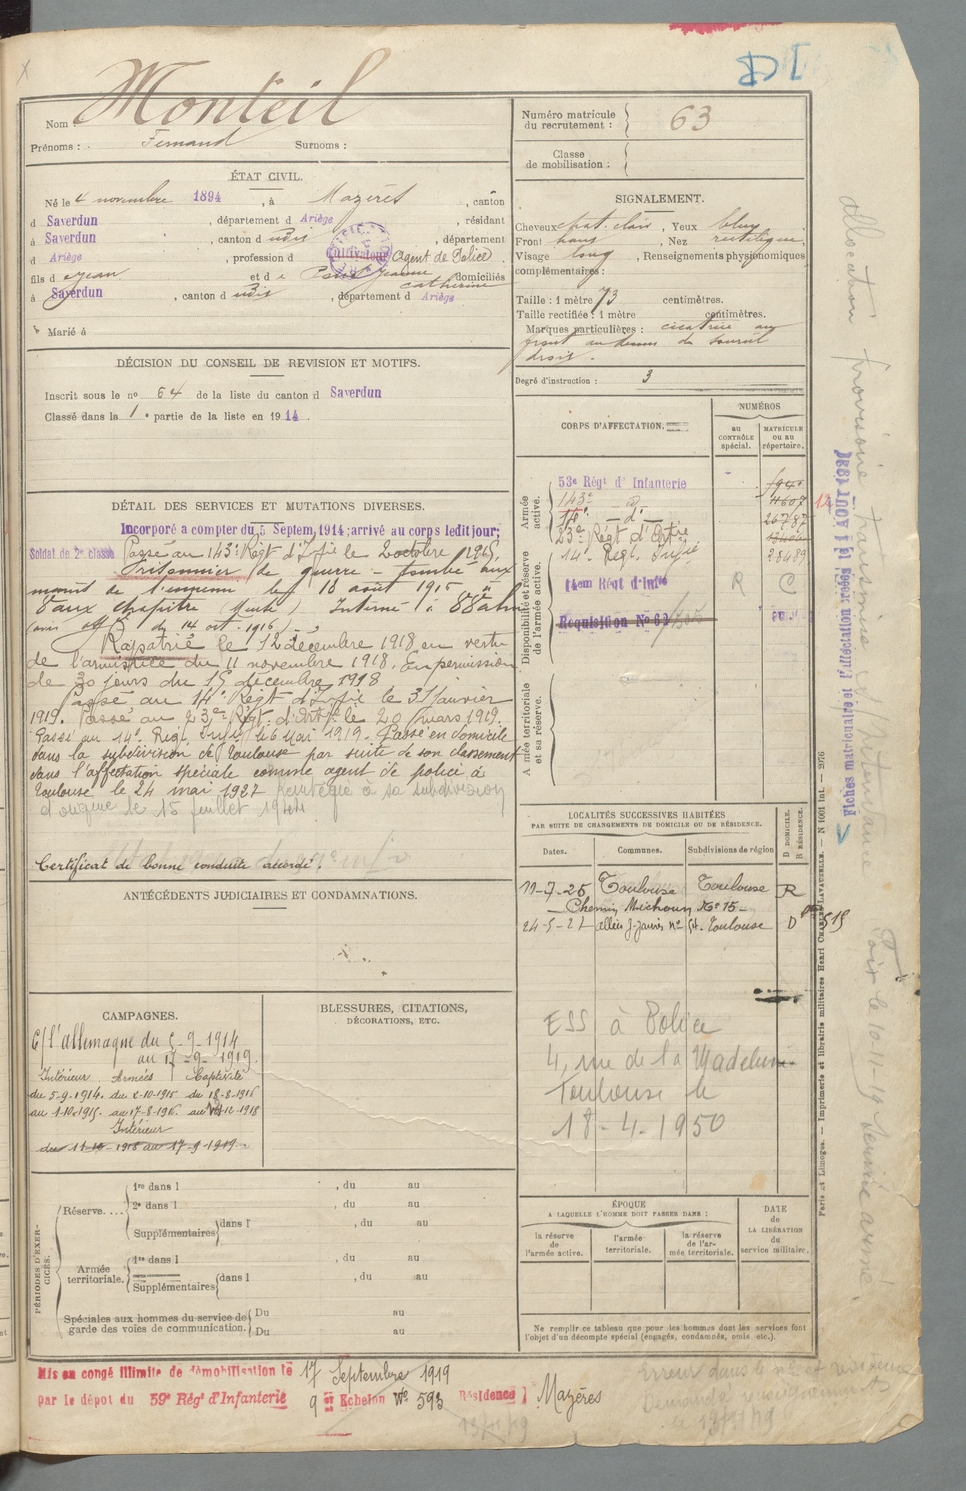 Nom : Monteil
Prénoms : Fernand Surnoms :
Numéro matricule du recrutement : 63
Classe de mobilisation :
ÉTAT CIVIL.
Né le 4 novembre 1894, à Mazères, canton
d Saverdun, département d Ariège, résidant
à Saverdun, canton d udis, département
d Ariège, profession d Cultivateur (Agent de Police).
fils d Jean et d e Pons Jeanne Catherine domiciliés
à Saverdun, canton d udis, département d Ariège
Marié à
SIGNALEMENT.
Cheveux chat. clair, Yeux bleu
Front haut, Nez rectiligne
Visage long, Renseignements physionomiques
complémentaires :
Taille : 1 mètre 73 centimètres.
Taille rectifiée : 1 mètre centimètres.
Marques particulières : cicatrice au
front au dessus du sourcil
droit.
Degré d'instruction : 3
DÉCISION DU CONSEIL DE REVISION ET MOTIFS.
Inscrit sous le nº 64 de la liste du canton d Saverdun
Classé dans la 1e partie de la liste en 1914.
DÉTAIL DES SERVICES ET MUTATIONS DIVERSES.
Incorporé à compter du 5 Septem. 1914; arrivé au corps ledit jour;
Soldat de 2e classe Passé au 143e Régt d'Ifie le 2 octobre 1915.
Prisonnier de guerre - tombé aux
mains de l'ennemi le 18 août 1916 à
Vaux Chapitre (Meuse) Interné à
(avis off. du 14 oct. 1916)
Rapatrié le 12 décembre 1918 en vertu
de l'armistice du 11 novembre 1918. En permission
de 30 jours du 15 décembre 1918
Passé au 14e Régt d'Ifie le 31 janvier
1919. Passé au 23e Régt d'Artie le 20 mars 1919.
Passé au 14e Régt Infie le 6 Mai 1919. Passé en domicile
dans la subdivision de Toulouse par suite de son classement
dans l'affectation spéciale comme agent de police à
Toulouse le 24 mai 1927 Réintégré à sa subdivision
d'origine le 15 juillet 1944.
Certificat de Bonne conduite accordé.
CORPS D'AFFECTATION.
NUMÉROS
au contrôle spécial.
matricule ou au répertoire.
Armée active.
53e Régt d'Infanterie
143e - d -
14e - d -
23e Régt d'Artie
Disponibilité et réserve de l'armée active.
14e Régt Infie 28489
14em Régt d'Infie R C
Réquisition No 62
Armée territoriale et sa réserve.
LOCALITÉS SUCCESSIVES HABITÉES
PAR SUITE DE CHANGEMENTS DE DOMICILE OU DE RÉSIDENCE.
Dates. Communes. Subdivisions de région D DOMICILE. R RÉSIDENCE.
11-7-25 Toulouse Toulouse R
Chemin Michoun No 15
24-5-27 allées J. Jaurès nº 54. Toulouse D 515
ESS à Police
4, rue de la Madeleine
Toulouse le
18-4-1950
ANTÉCÉDENTS JUDICIAIRES ET CONDAMNATIONS.
CAMPAGNES.
C/ l'allemagne du 5-9-1914
au 17-9-1919.
Intérieur Armées Captivité
du 5-9-1914. du 2-10-1915 du 18-8-1916
au 1-10-1915. au 17-8-1916. au 12-1918
Intérieur
BLESSURES, CITATIONS,
DÉCORATIONS, ETC.
PÉRIODES D'EXERCICES.
Réserve....
1re dans l , du au
2e dans l , du au
Supplémentaires dans l , du au
Armée territoriale.
1re dans l , du au
Supplémentaires dans l , du au
Spéciales aux hommes du service de garde des voies de communication.
Du au
Du au
ÉPOQUE
A LAQUELLE L'HOMME DOIT PASSER DANS :
la réserve de l'armée active.
l'armée territoriale.
la réserve de l'armée territoriale.
DATE de LA LIBÉRATION du service militaire.
Ne remplir ce tableau que pour les hommes dont les services font
l'objet d'un décompte spécial (engagés, condamnés, omis, etc.).
Mis en congé illimité de démobilisation le 17 Septembre 1919
par le dépôt du 59e Régt d'Infanterie 9 er Echelon No 593 Résidence : Mazères
13/11/19
Erreur dans le nº et résidence
Demandé renseignements
le 13/11/19
Fiches matriculaire et d'affectation créées le 1 AOUT 1927
Paris et Limoges. — Imprimerie et librairie militaires Henri CHARLES-LAVAUZELLE. — N 1001 Int. — 2076